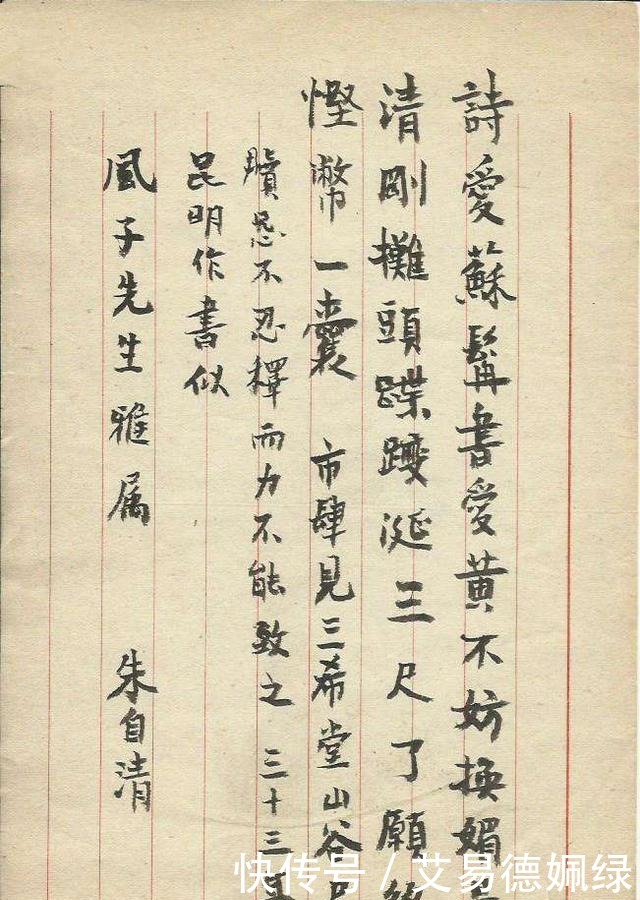 詩愛蘇髯書愛黃不妨換媚
清剛攤頭蹀躞涎三尺了願
慳幣一囊 市肆見三希堂山谷尺
牘忍不忍釋而力不能致之 三十三年
昆明作書似
風子先生雅属 朱自清
快传号 / 艾易德姵绿